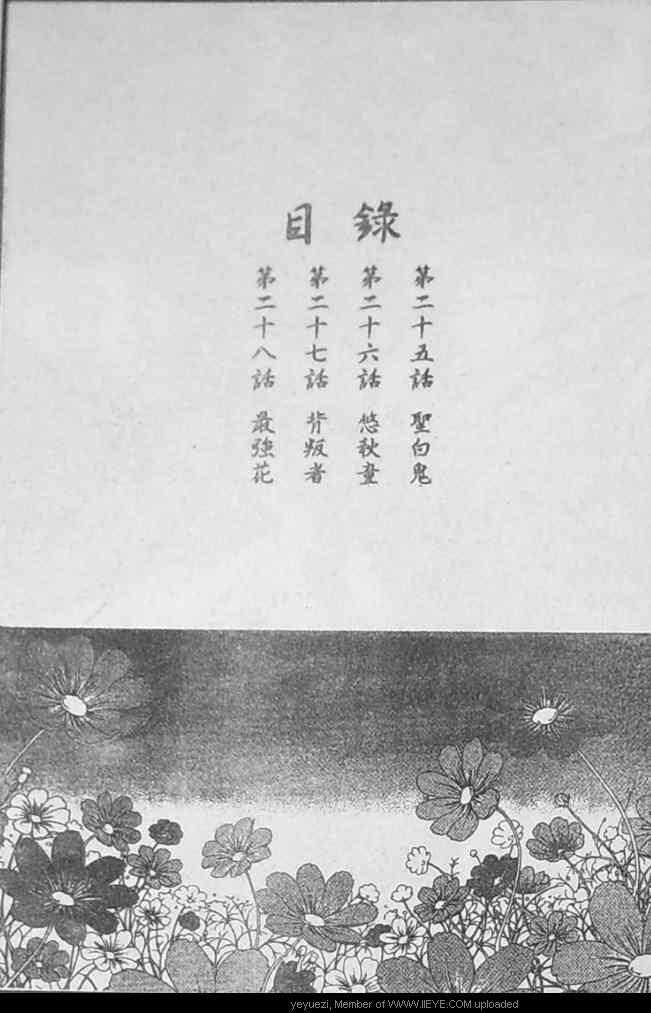 目錄
第二十五話 聖白鬼
第二十六話 悠秋畫
第二十七話 背叛者
第二十八話 最強花
yeyuezi, Member of WWW.IIEYE.COM uploaded